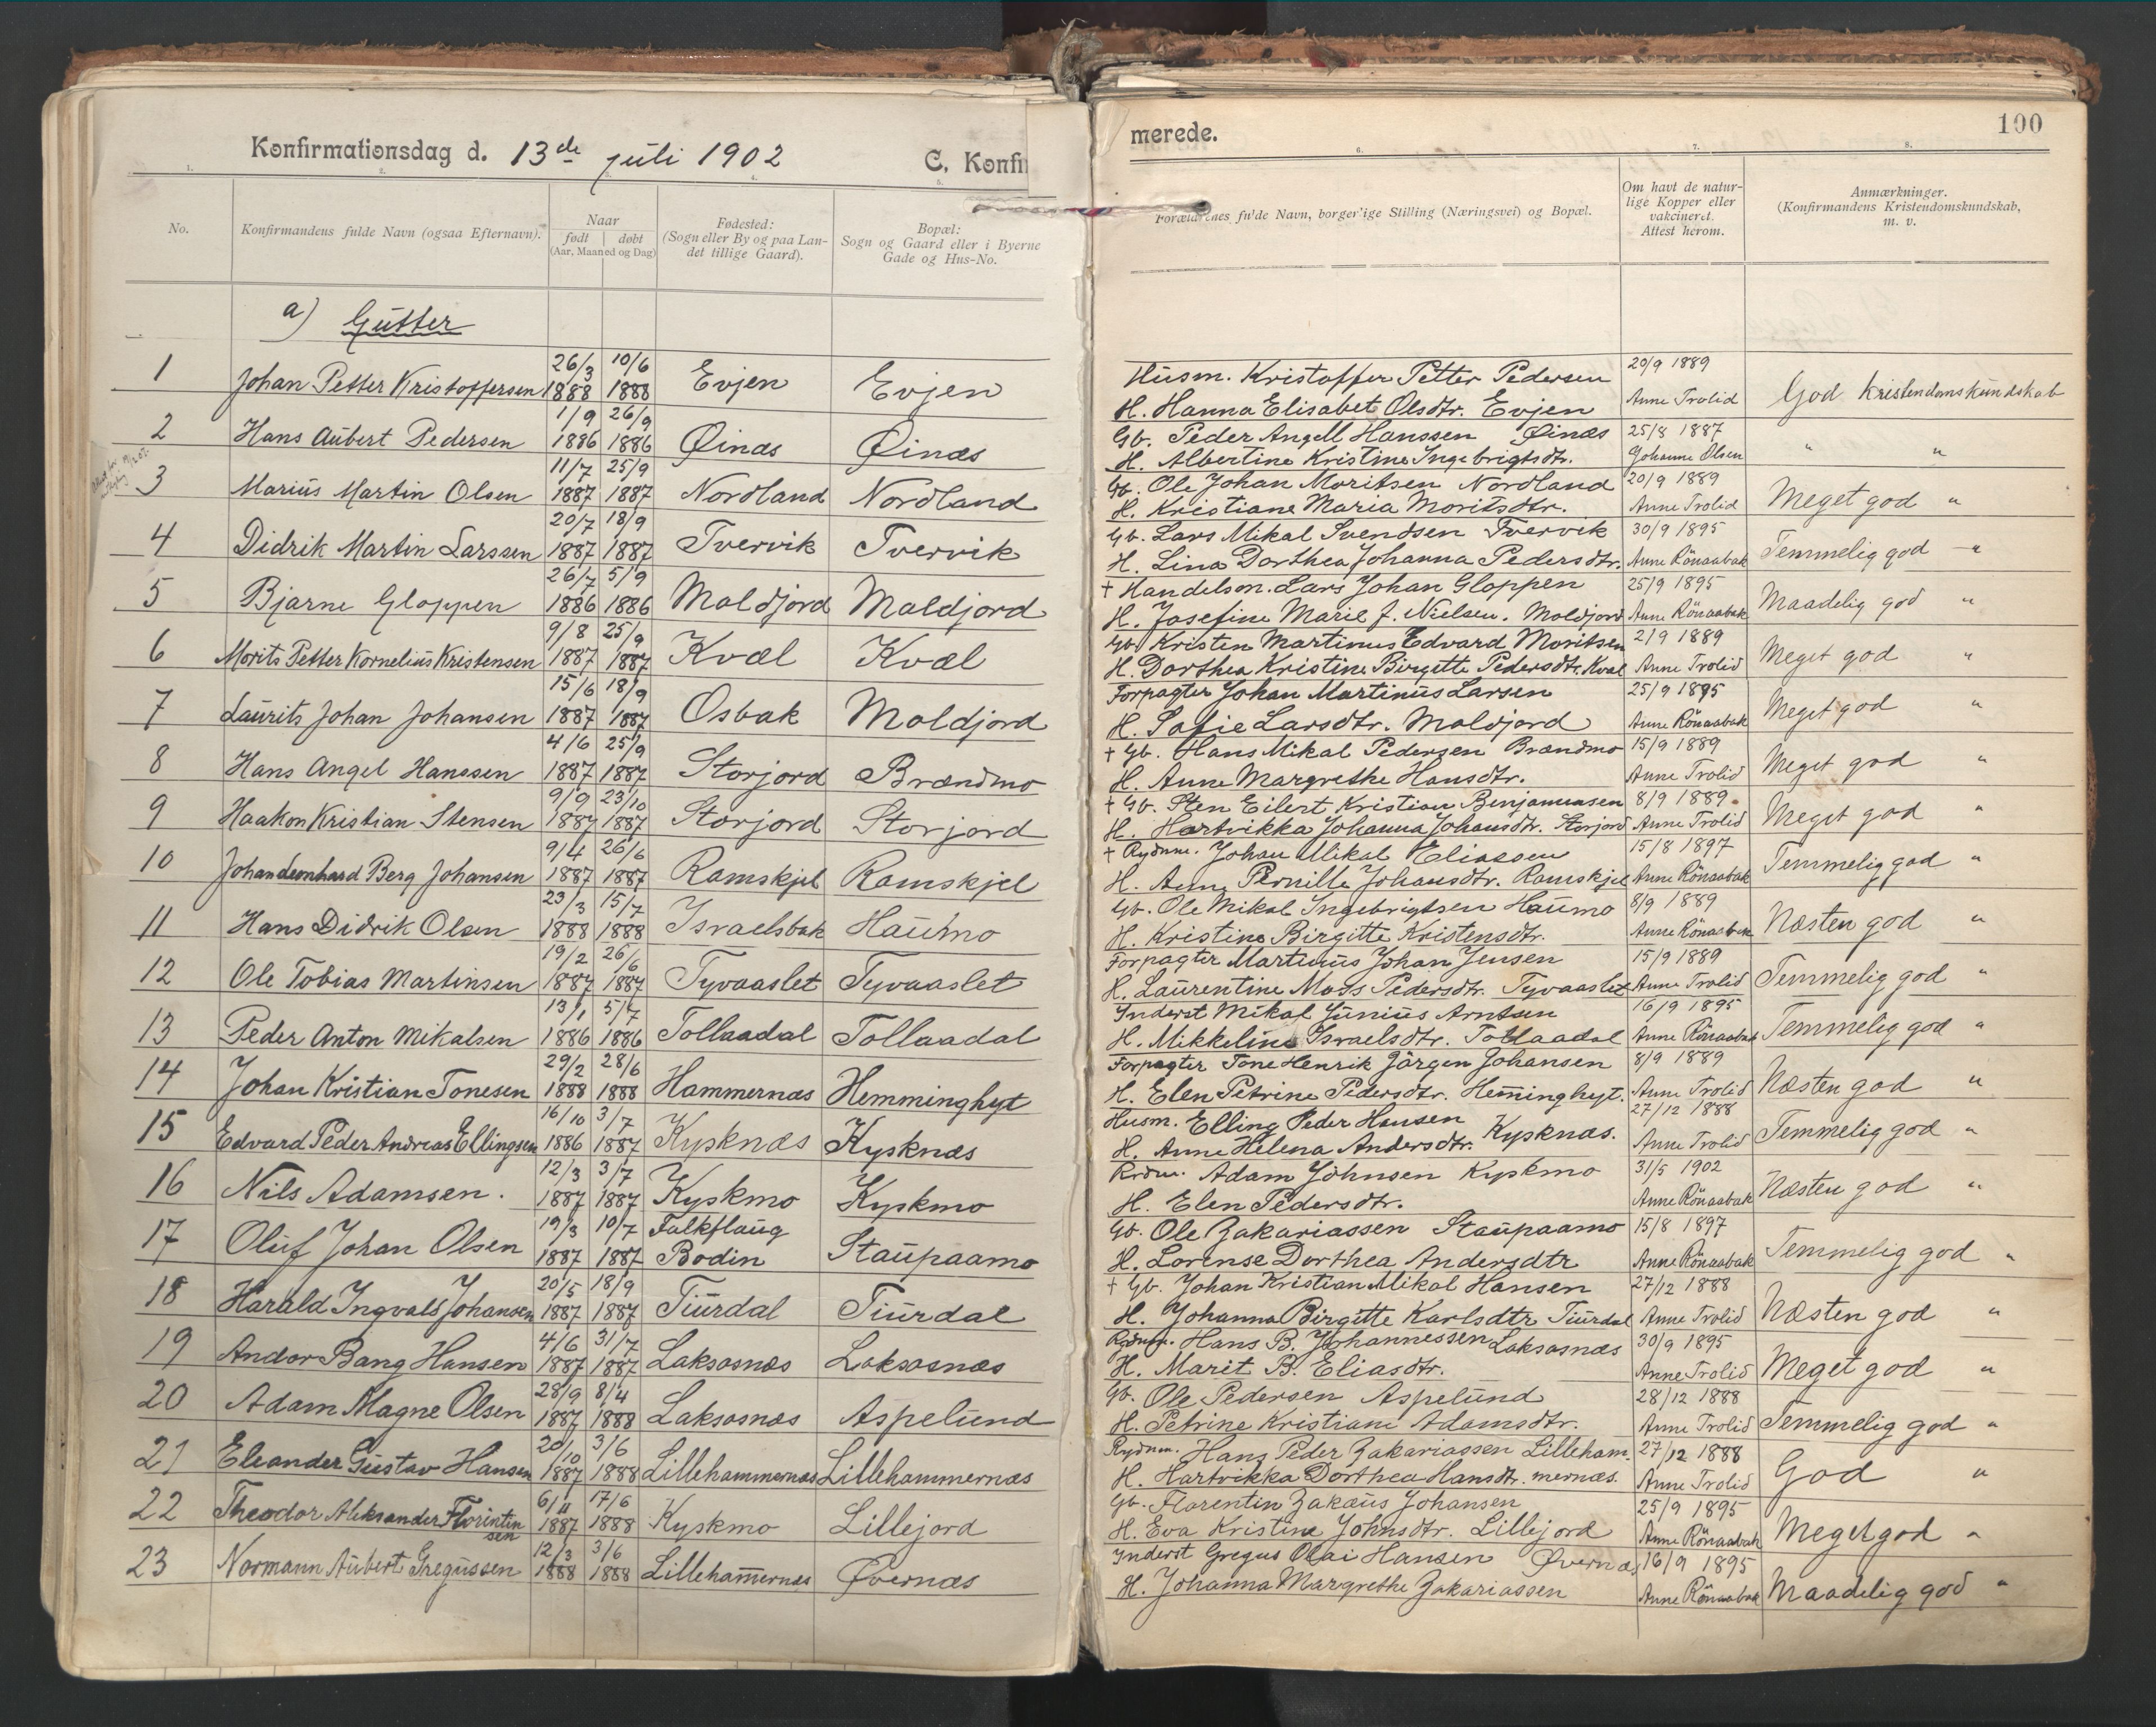 Konfirmationsdag d. 13de juli 1902
C. Konfir
merede.
100
1. 2. 4. 5. 6. 7. 8.
No.
Konfirmandens fulde Navn (ogsaa Efternavn).
Naar
født | døbt
(Aar, Maaned og Dag)
Fødested:
(Sogn eller By og paa Lan-
det tillige Gaard).
Bopæl:
Sogn og Gaard eller i Byerne
Gade og Hus-No.
Forældrenes fulde Navn, borgerlige Stilling (Næringsvei) og Bopæl.
Om havt de natur-
lige Kopper eller
vakcineret.
Attest herom.
Anmærkninger.
(Konfirmandens Kristendomskundskab,
m. v.
a) Gutter
1 Johan Petter Kristoffersen 26/3 1888 10/6 1888 Evjen Evjen
Husm. Kristoffer Petter Pedersen 20/9 1889
H. Hanna Elisabet Olsdtr. Evjen Anne Trolid God Kristendomskundskab
2 Hans Aubert Pedersen 1/9 1886 26/9 1886 Øinæs Øinæs
Gb. Peder Angell Hanssen Øinæs 25/8 1887
H. Albertine Kristine Ingebrigtsdtr. Johanne Olsen " "
3 Marius Martin Olsen 11/7 1887 25/9 1887 Nordland Nordland
Gb. Ole Johan Moritsen Nordland 20/9 1889
H. Kristiane Maria Moritsdtr. Anne Trolid Meget god "
4 Didrik Martin Larssen 20/7 1887 18/9 1887 Tvervik Tvervik
Gb. Lars Mikal Svendsen Tvervik 30/9 1895
H. Lina Dorthea Johanna Pedersdtr. Anne Rönaabak Temmelig god "
5 Bjarne Gloppen 26/7 1886 5/9 1886 Moldjord Moldjord
+ Handelsm. Lars Johan Gloppen 25/9 1895
H. Josefine Marie J. Nielsen. Moldjord Anne Rönaabak Maadelig god "
6 Morits Petter Kornelius Kristensen 9/8 1887 25/9 1887 Kvæl Kvæl
Gb. Kristen Martinus Edvard Moritsen 2/9 1889
H. Dorthea Kristine Birgette Pedersdtr. Kvæl Anne Trolid Meget god "
7 Laurits Johan Johansen 15/6 1887 18/9 1887 Osbak Moldjord
Forpagter Johan Martinus Larsen 25/9 1895
H. Sofie Larsdtr. Moldjord Anne Rönaabak Meget god "
8 Hans Angel Hanssen 4/6 1887 25/9 1887 Storjord Brændmo
+ Gb. Hans Mikal Pedersen Brændmo 15/9 1889
H. Anne Margrethe Hansdtr. Anne Trolid Meget god "
9 Haakon Kristian Stensen 9/9 1887 23/10 1887 Storjord Storjord
+ Gb. Sten Eilert Kristian Benjaminsen 8/9 1889
H. Hartvikka Johanna Johansdtr. Storjord Anne Trolid Meget god "
10 Johan Leonhard Berg Johansen 9/4 1887 26/6 1887 Ramskjel Ramskjel
+ Rydnm. Johan Mikal Eliassen 15/8 1897
H. Anne Pernille Johansdtr. Ramskjel Anne Rönaabak Temmelig god "
11 Hans Didrik Olsen 23/3 1888 15/7 1888 Israelsbak Haumo
Gb. Ole Mikal Ingebrigtsen Haumo 8/9 1889
H. Kristine Birgitte Kristensdtr. Anne Rönaabak Næsten god "
12 Ole Tobias Martinsen 19/2 1887 26/6 1887 Tyvaaslet Tyvaaslet
Forpagter Martinus Johan Jensen 15/9 1889
H. Laurentine Moss Pedersdtr. Tyvaaslet Anne Trolid Temmelig god "
13 Peder Anton Mikalsen 13/1 1886 5/7 1886 Tollaadal Tollaadal
Inderst Mikal Junius Arntsen 16/9 1895
H. Mikkeline Israelsdtr. Tollaadal Anne Rönaabak Temmelig god "
14 Johan Kristian Tonesen 29/2 1888 28/6 1888 Hammernæs Hemminghyt
Forpagter Tone Henrik Jörgen Johansen 8/9 1889
H. Elen Petrine Pedersdtr. Hemminghyt. Anne Trolid Næsten god "
15 Edvard Peder Andreas Ellingsen 16/10 1886 3/7 1887 Kysknæs Kysknæs
Husm. Elling Peder Hansen 27/12 1888
H. Anne Helena Andersdtr. Kysknæs. Anne Trolid Temmelig god "
16 Nils Adamsen. 12/3 1887 3/7 1887 Kyskmo Kyskmo
Rydnm. Adam Johnsen Kyskmo 31/5 1902
H. Elen Pedersdtr. Anne Rönaabak Næsten god "
17 Oluf Johan Olsen 19/3 1887 10/7 1887 Falkflaug Bodin Staupaamo
Gb. Ole Zakariassen Staupaamo 15/8 1897
H. Lorense Dorthea Andersdtr Anne Rönaabak Temmelig god "
18 Harald Ingvald Johansen 20/5 1887 18/9 1887 Tiurdal Tiurdal
+ Gb. Johan Kristian Mikal Hansen 27/12 1888
H. Johanna Birgitte Karlsdtr Tiurdal Anne Trolid Næsten god "
19 Andor Bang Hansen 4/6 1887 31/7 1887 Laksosnæs Laksosnæs
Rydnm. Hans B. Johannessen Laksosnæs 30/9 1895
H. Marit B. Eliasdtr. Anne Trolid Meget god "
20 Adam Magne Olsen 28/9 1887 8/4 1888 Laksosnæs Aspelund
Gb. Ole Pedersen Aspelund 28/12 1888
H. Petrine Kristiane Adamsdtr. Anne Trolid Temmelig god "
21 Eleander Gustav Hansen 20/10 1887 3/6 1888 Lillehammernæs Lillehammernæs
Rydnm. Hans Peder Zakariassen Lilleham- 27/12 1888
H. Hartvikka Dorthea Hansdtr. mernæs. Anne Trolid God "
22 Theodor Aleksander Florintin sen 6/11 1887 17/6 1888 Kyskmo Lillejord
Gb. Florentin Zakæus Johansen 25/9 1895
H. Eva Kristine Johnsdtr. Lillejord Anne Rönaabak Meget god "
23 Normann Aubert Gregussen 12/3 1888 3/6 1888 Lillehammernæs Øvernæs
Inderst Gregus Olai Hansen Øvernæs 16/9 1895
H. Johanna Margrethe Zakariassen Anne Rönaabak Maadelig god "